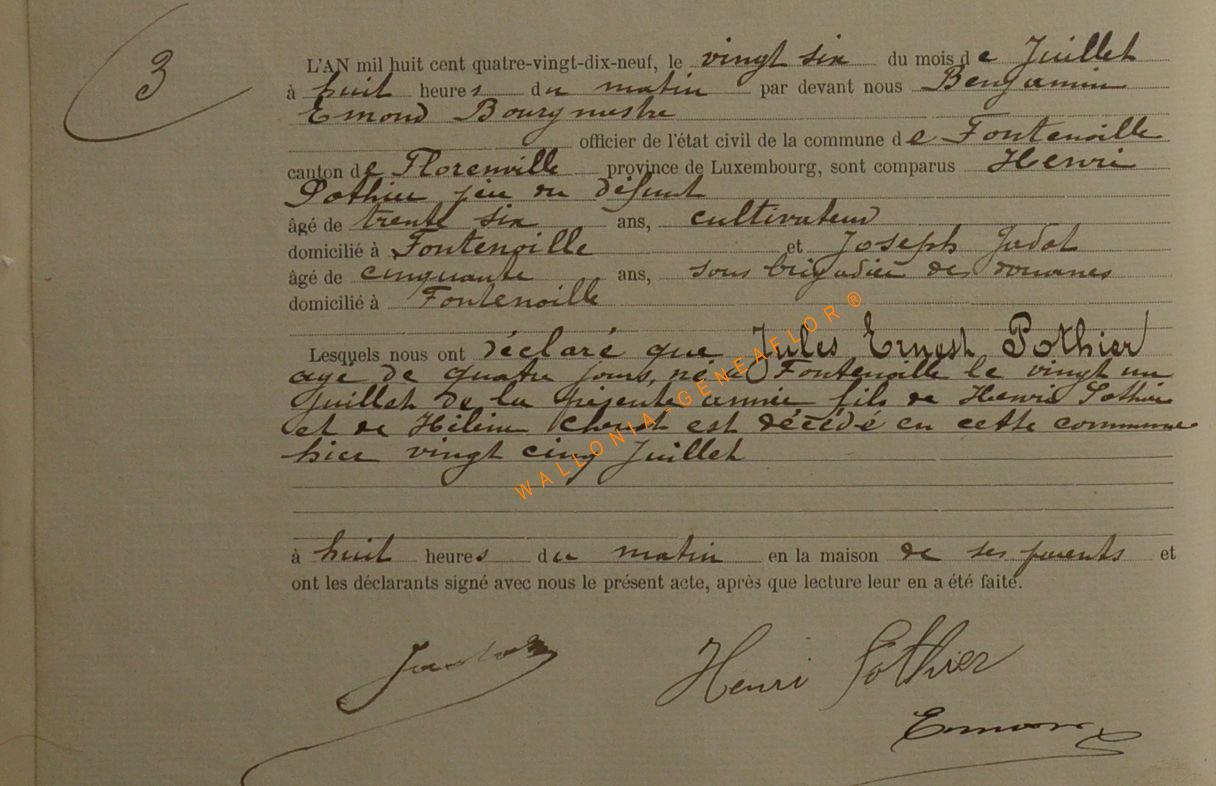 3
L'AN mil huit cent quatre-vingt-dix-neuf, le vingt six du mois de Juillet
à huit heures du matin par devant nous Benjamin
Emond Bourgmestre
officier de l'état civil de la commune de Fontenoille
canton de Florenville province de Luxembourg, sont comparus Henri
Pothier père du défunt
âgé de trente six ans, cultivateur
domicilié à Fontenoille et Joseph Jadot
âgé de cinquante ans, sous brigadier des douanes
domicilié à Fontenoille
Lesquels nous ont déclaré que Jules Ernest Pothier
agé de quatre jours, né à Fontenoille le vingt un
Juillet de la présente année fils de Henri Pothier
et de est décédé en cette commune
hier vingt cinq Juillet
à huit heures du matin en la maison de ses parents et
ont les déclarants signé avec nous le présent acte, après que lecture leur en a été faite.
Jadot Henri Pothier
Emond
WALLONIA-GENEAFLOR®